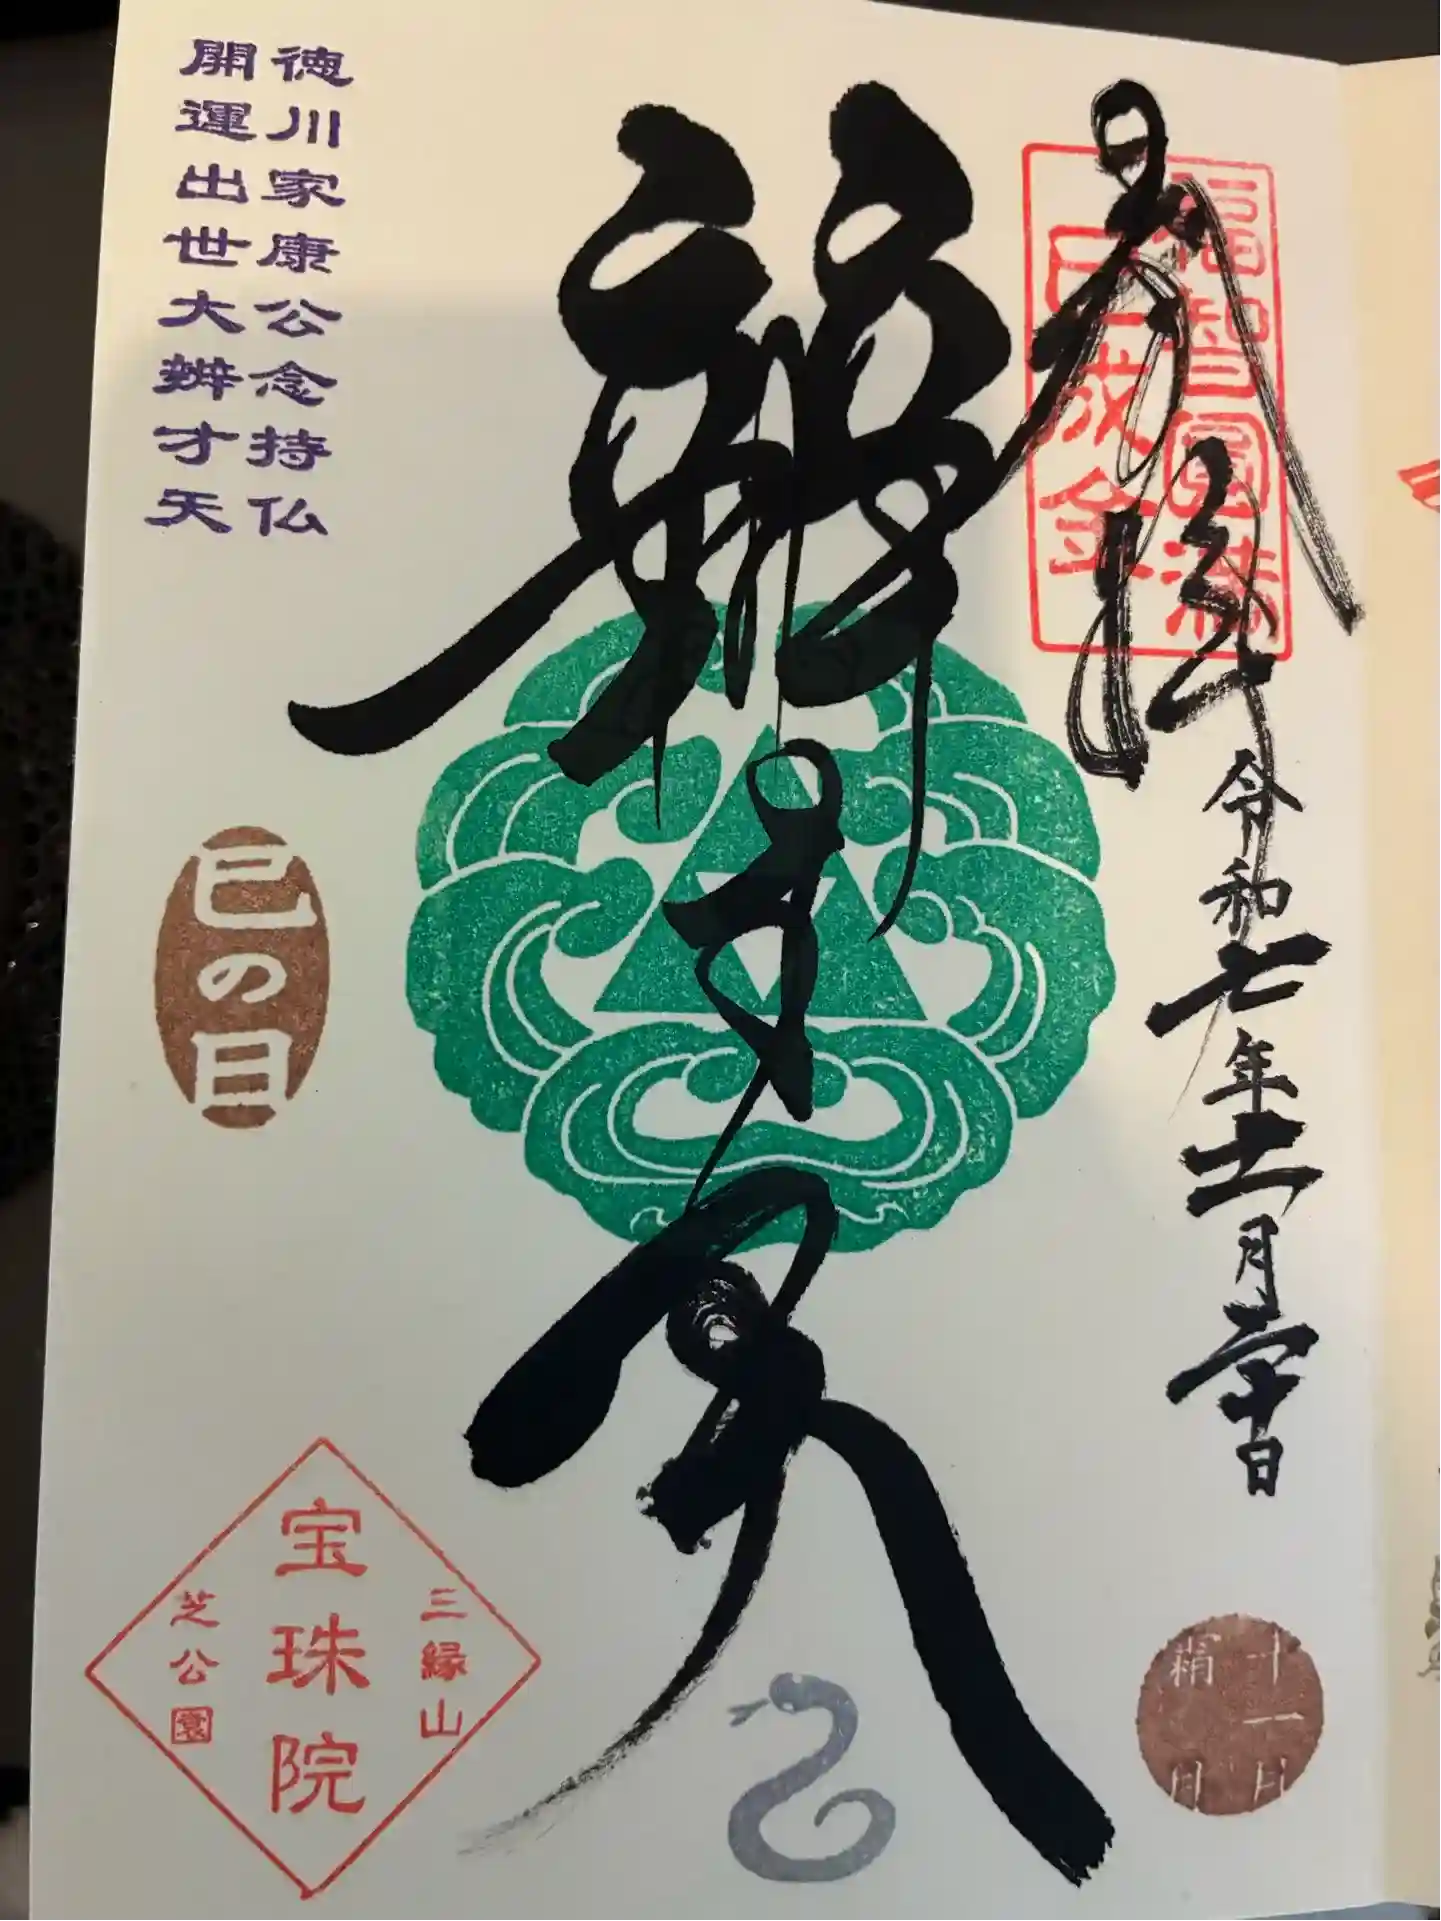 奉拝
福智圓満
巳成金
令和七年十一月
辨才天
徳川家康公念持仏
開運出世大辨才天
巳の日
三縁山
宝珠院
芝公園
十一月
霜月